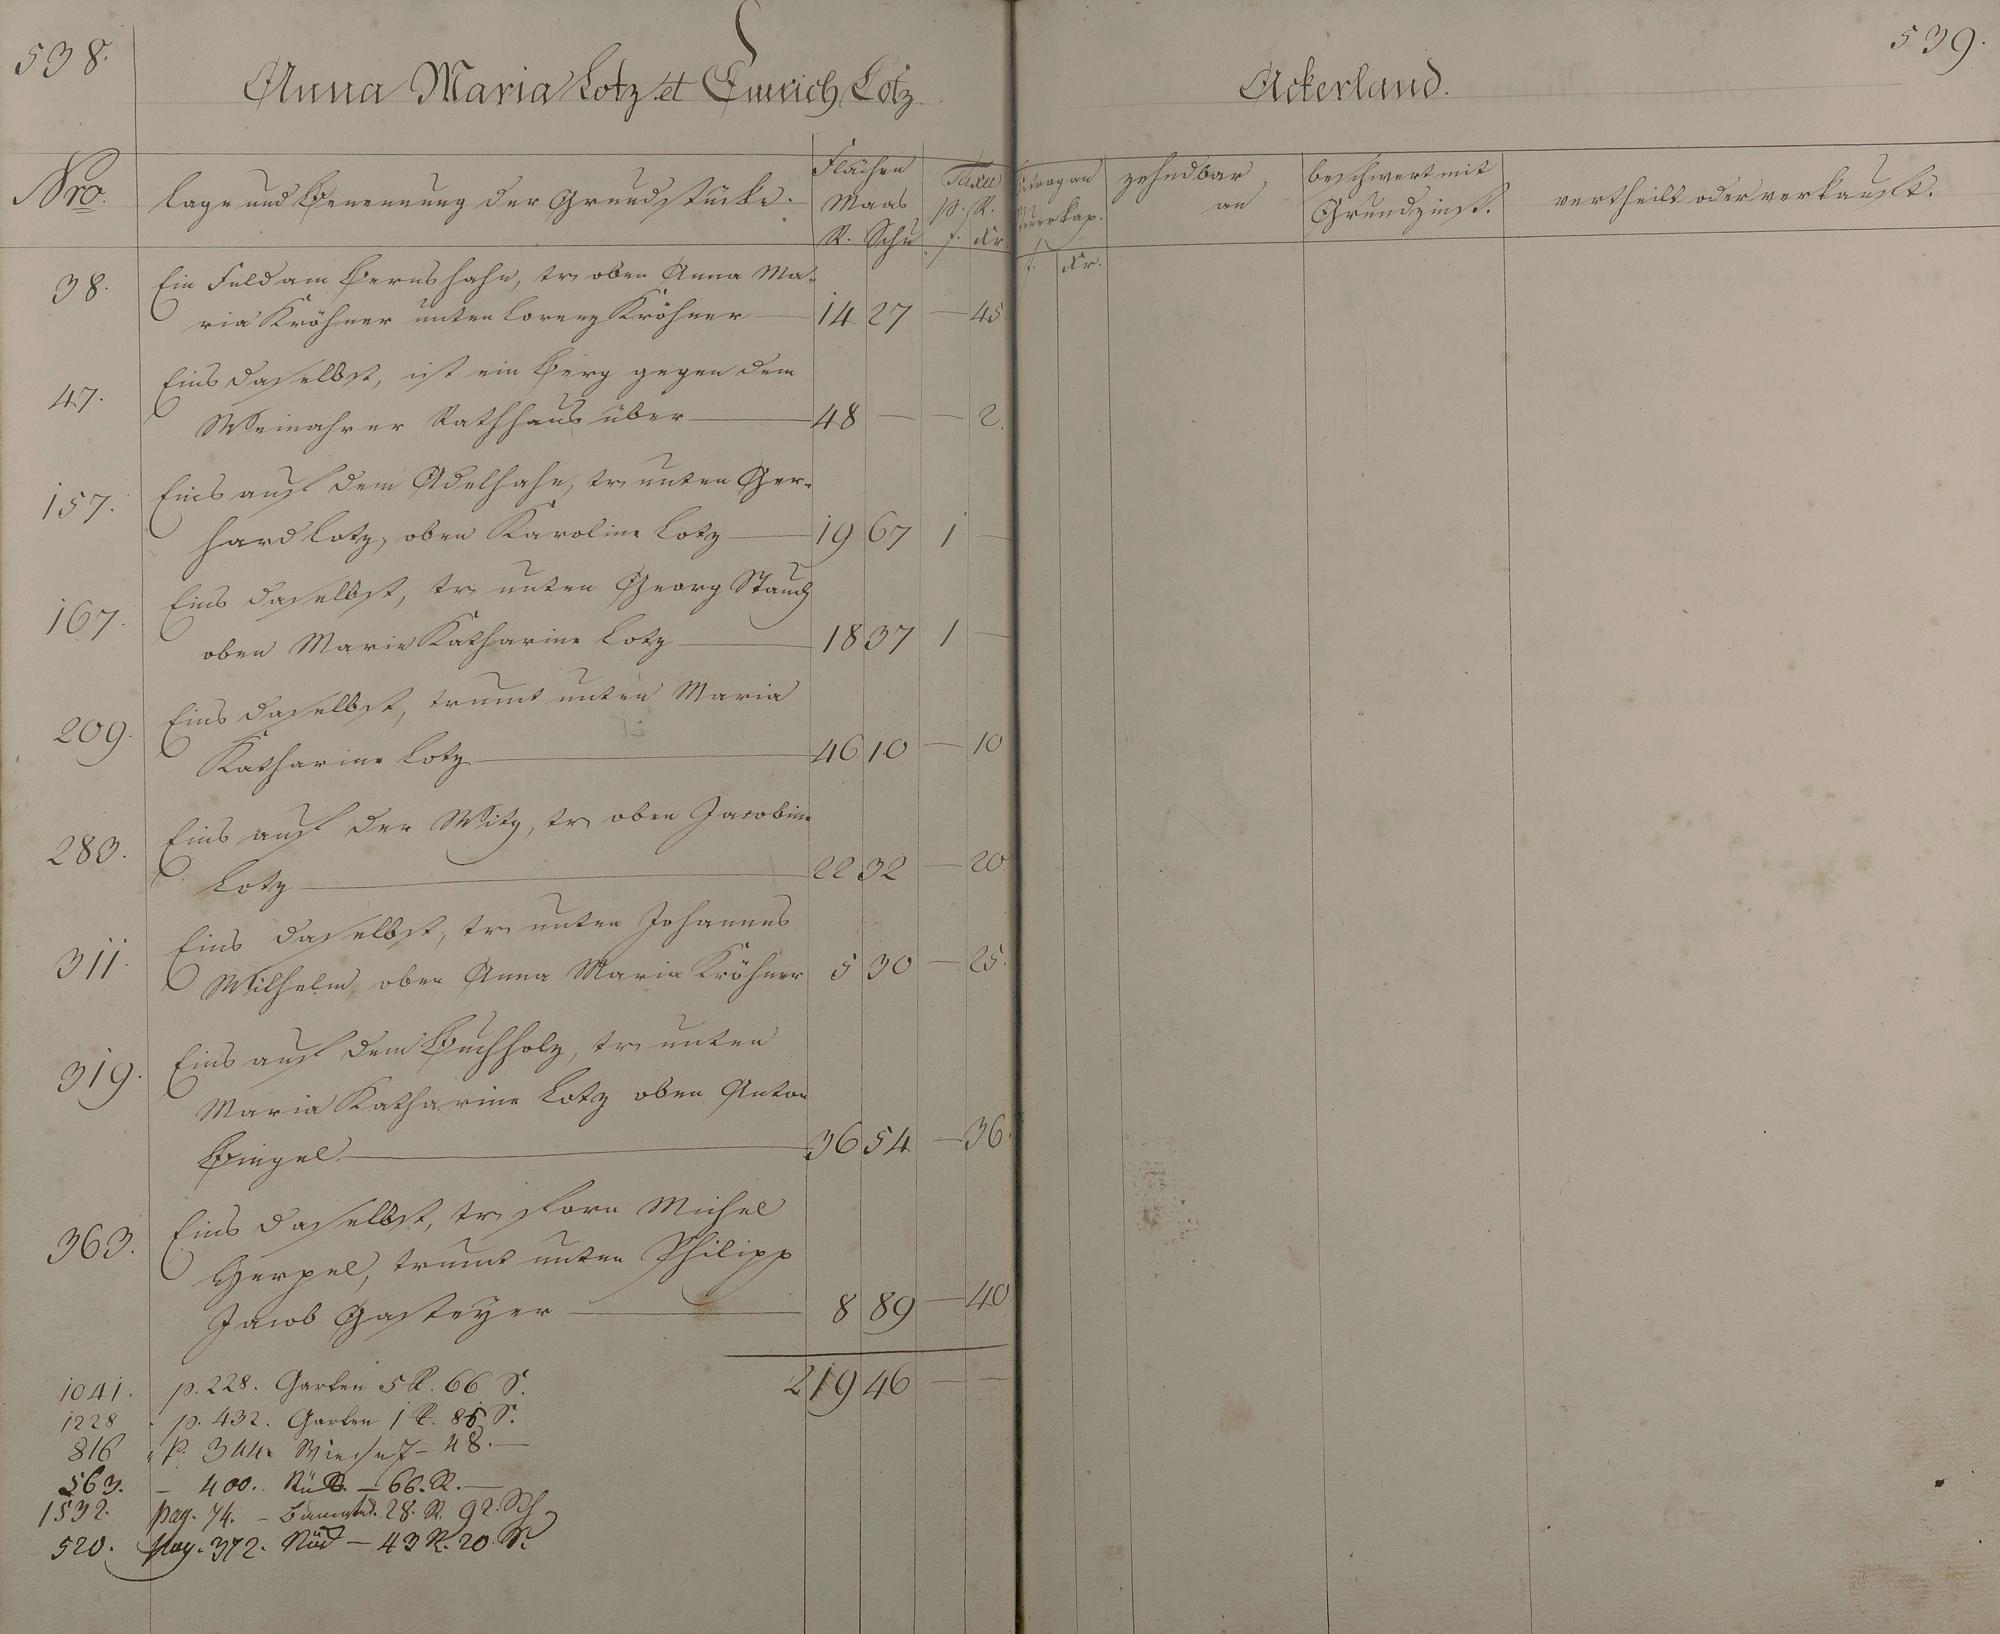 538.
539.
Anna Maria Lotz et Emrich Lotz
Ackerland.
Nro.
Lage und Benennung der Grundstücke.
Flächen
Maas
R. Schu
Taxe
p. R.
f. Kr.
Betrag an
Steuerkap.
f. Kr.
zehndbar
an
beschwert mit
Grundzinst.
vertheilt oder verkauft.
38. Ein Feld am Bernshahn, tr oben Anna Ma-
ria Kröhner unten Lorenz Kröhner — 14 27 — 45
47. Eins daselbst, ist ein Berg gegen dem
Weinahrer Rathhaus über — 48 — — 2.
157. Eins auf dem Adelhahn, tr unten Ger-
hard Lotz, oben Karoline Lotz — 19 67 1 —
167. Eins daselbst, tr unten Georg Stauch
oben Maria Katharine Lotz — 18 37 1 —
209. Eins daselbst, trumt unten Maria
Katharine Lotz — 46 10 — 10
283. Eins auf der Witz, tr oben Jacobine
Lotz — 22 32 — 20.
311. Eins daselbst, tr unten Johannes
Wilhelm, oben Anna Maria Kröhner 5 30 — 25.
319. Eins auf dem Buchholz, tr unten
Maria Katharine Lotz oben Anton
Bingel — 36 54 — 36.
363. Eins daselbst, tr forn Michel
Herpel, trumt unten Philipp
Jacob Gasteyer — 8 89 — 40.
219 46 — —
1041. p. 228. Garten 5 R. 66 S.
1228 p. 432. Garten 1 R. 85 S.
816 " p. 344. Wiese 7 — 48. —
563. — 400. — 66. R. —
1532. pag. 74. — 28. R. 92. Sch
520. pag. 372. Röd — 43 R. 20 S.